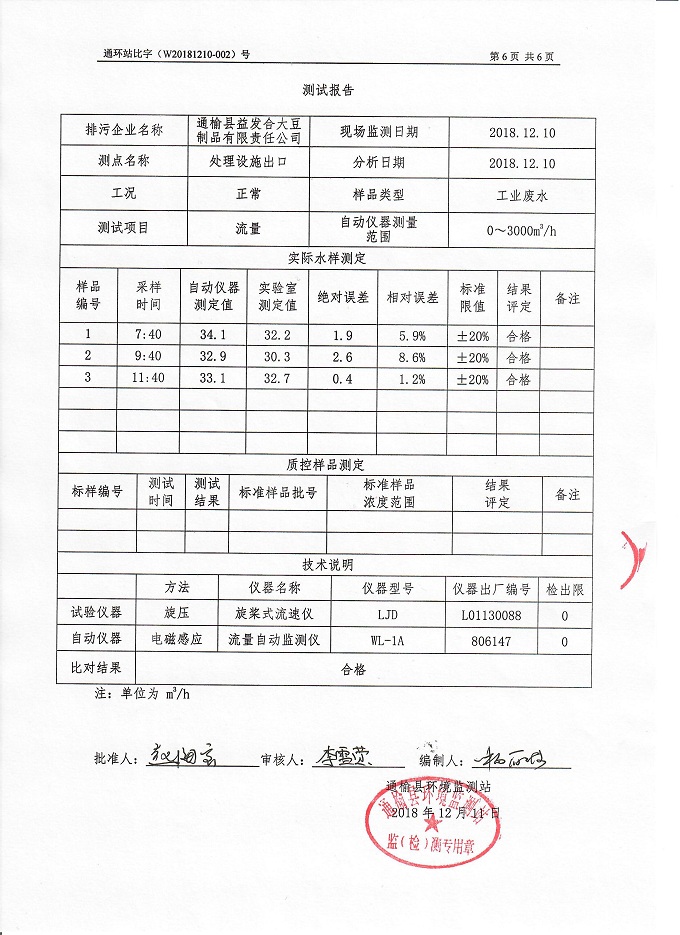 通环站比字（W20181210-002）号 第 6 页 共 6 页
测试报告
排污企业名称 通榆县益发合大豆制品有限责任公司 现场监测日期 2018.12.10
测点名称 处理设施出口 分析日期 2018.12.10
工况 正常 样品类型 工业废水
测试项目 流量 自动仪器测量范围 0～3000m³/h
实际水样测定
样品编号 采样时间 自动仪器测定值 实验室测定值 绝对误差 相对误差 标准限值 结果评定 备注
1 7:40 34.1 32.2 1.9 5.9% ±20% 合格
2 9:40 32.9 30.3 2.6 8.6% ±20% 合格
3 11:40 33.1 32.7 0.4 1.2% ±20% 合格
质控样品测定
标样编号 测试时间 测试结果 标准样品批号 标准样品浓度范围 结果评定 备注
技术说明
方法 仪器名称 仪器型号 仪器出厂编号 检出限
试验仪器 旋压 旋桨式流速仪 LJD L01130088 0
自动仪器 电磁感应 流量自动监测仪 WL-1A 806147 0
比对结果 合格
注：单位为 m³/h
批准人： 审核人：李雪莹 编制人：
通榆县环境监测站
2018 年 12 月 11 日
通榆县环境监测站
监（检）测专用章